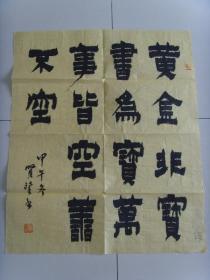 黄金非寶
書為寶萬
事皆空善
不空
甲午冬